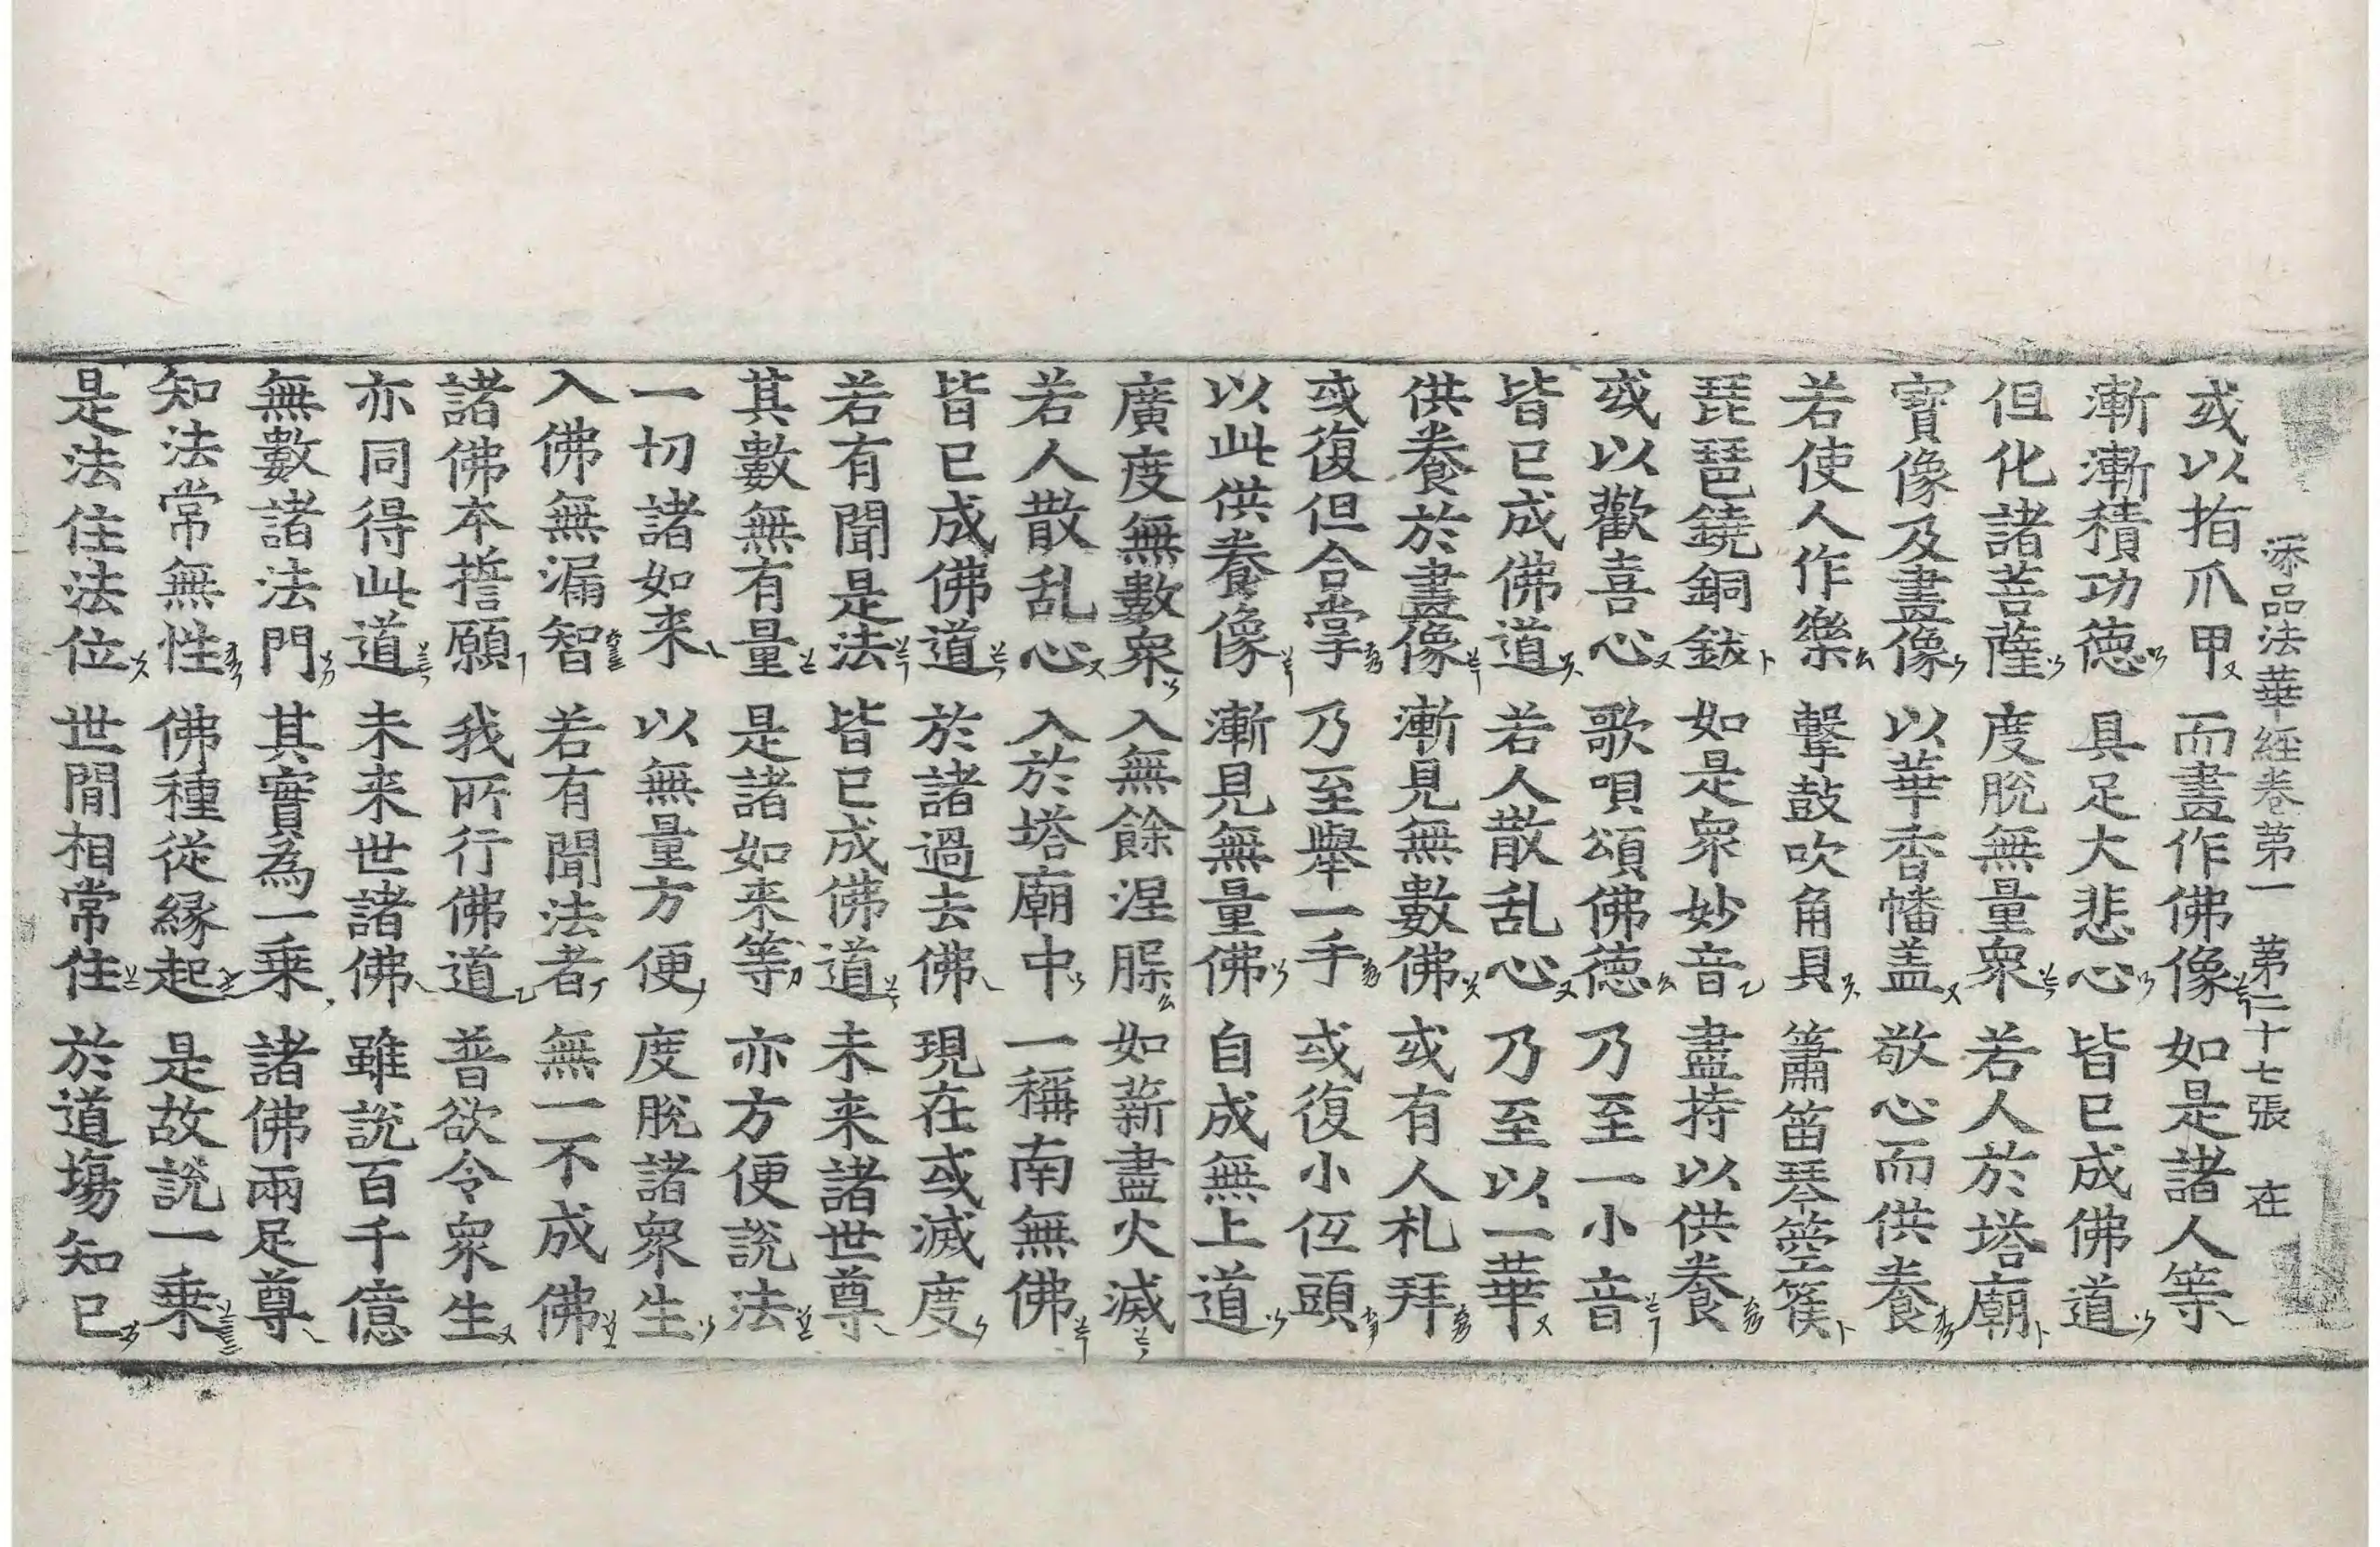 添品法華経卷苐一 苐二十七張 在
或以指爪甲 而畫作佛像 如是諸人等
漸漸積功徳 具足大悲心 皆已成佛道
但化諸菩薩 度脫無量衆 若人於塔廟
寶像及畫像 以華香幡盖 敬心而供養
若使人作樂 擊鼓吹角貝 簫笛琴箜篌
琵琶鐃銅鈸 如是衆妙音 盡持以供養
或以歡喜心 歌唄頌佛徳 乃至一小音
皆已成佛道 若人散乱心 乃至以一華
供養於畫像 漸見無數佛 或有人礼拜
或復但合掌 乃至舉一手 或復小伭頭
以此供養像 漸見無量佛 自成無上道
廣度無數衆 入無餘涅槃 如薪盡火滅
若人散乱心 入於塔廟中 一稱南無佛
皆已成佛道 於諸過去佛 現在或滅度
若有聞是法 皆已成佛道 未来諸世尊
其數無有量 是諸如来等 亦方便說法
一切諸如来 以無量方便 度脫諸衆生
入佛無漏智 若有聞法者 無一不成佛
諸佛本誓願 我所行佛道 普欲令衆生
亦同得此道 未来世諸佛 雖說百千億
無數諸法門 其實為一乗 諸佛兩足尊
知法常無性 佛種從緣起 是故說一乗
是法住法位 世間相常住 於道場知已